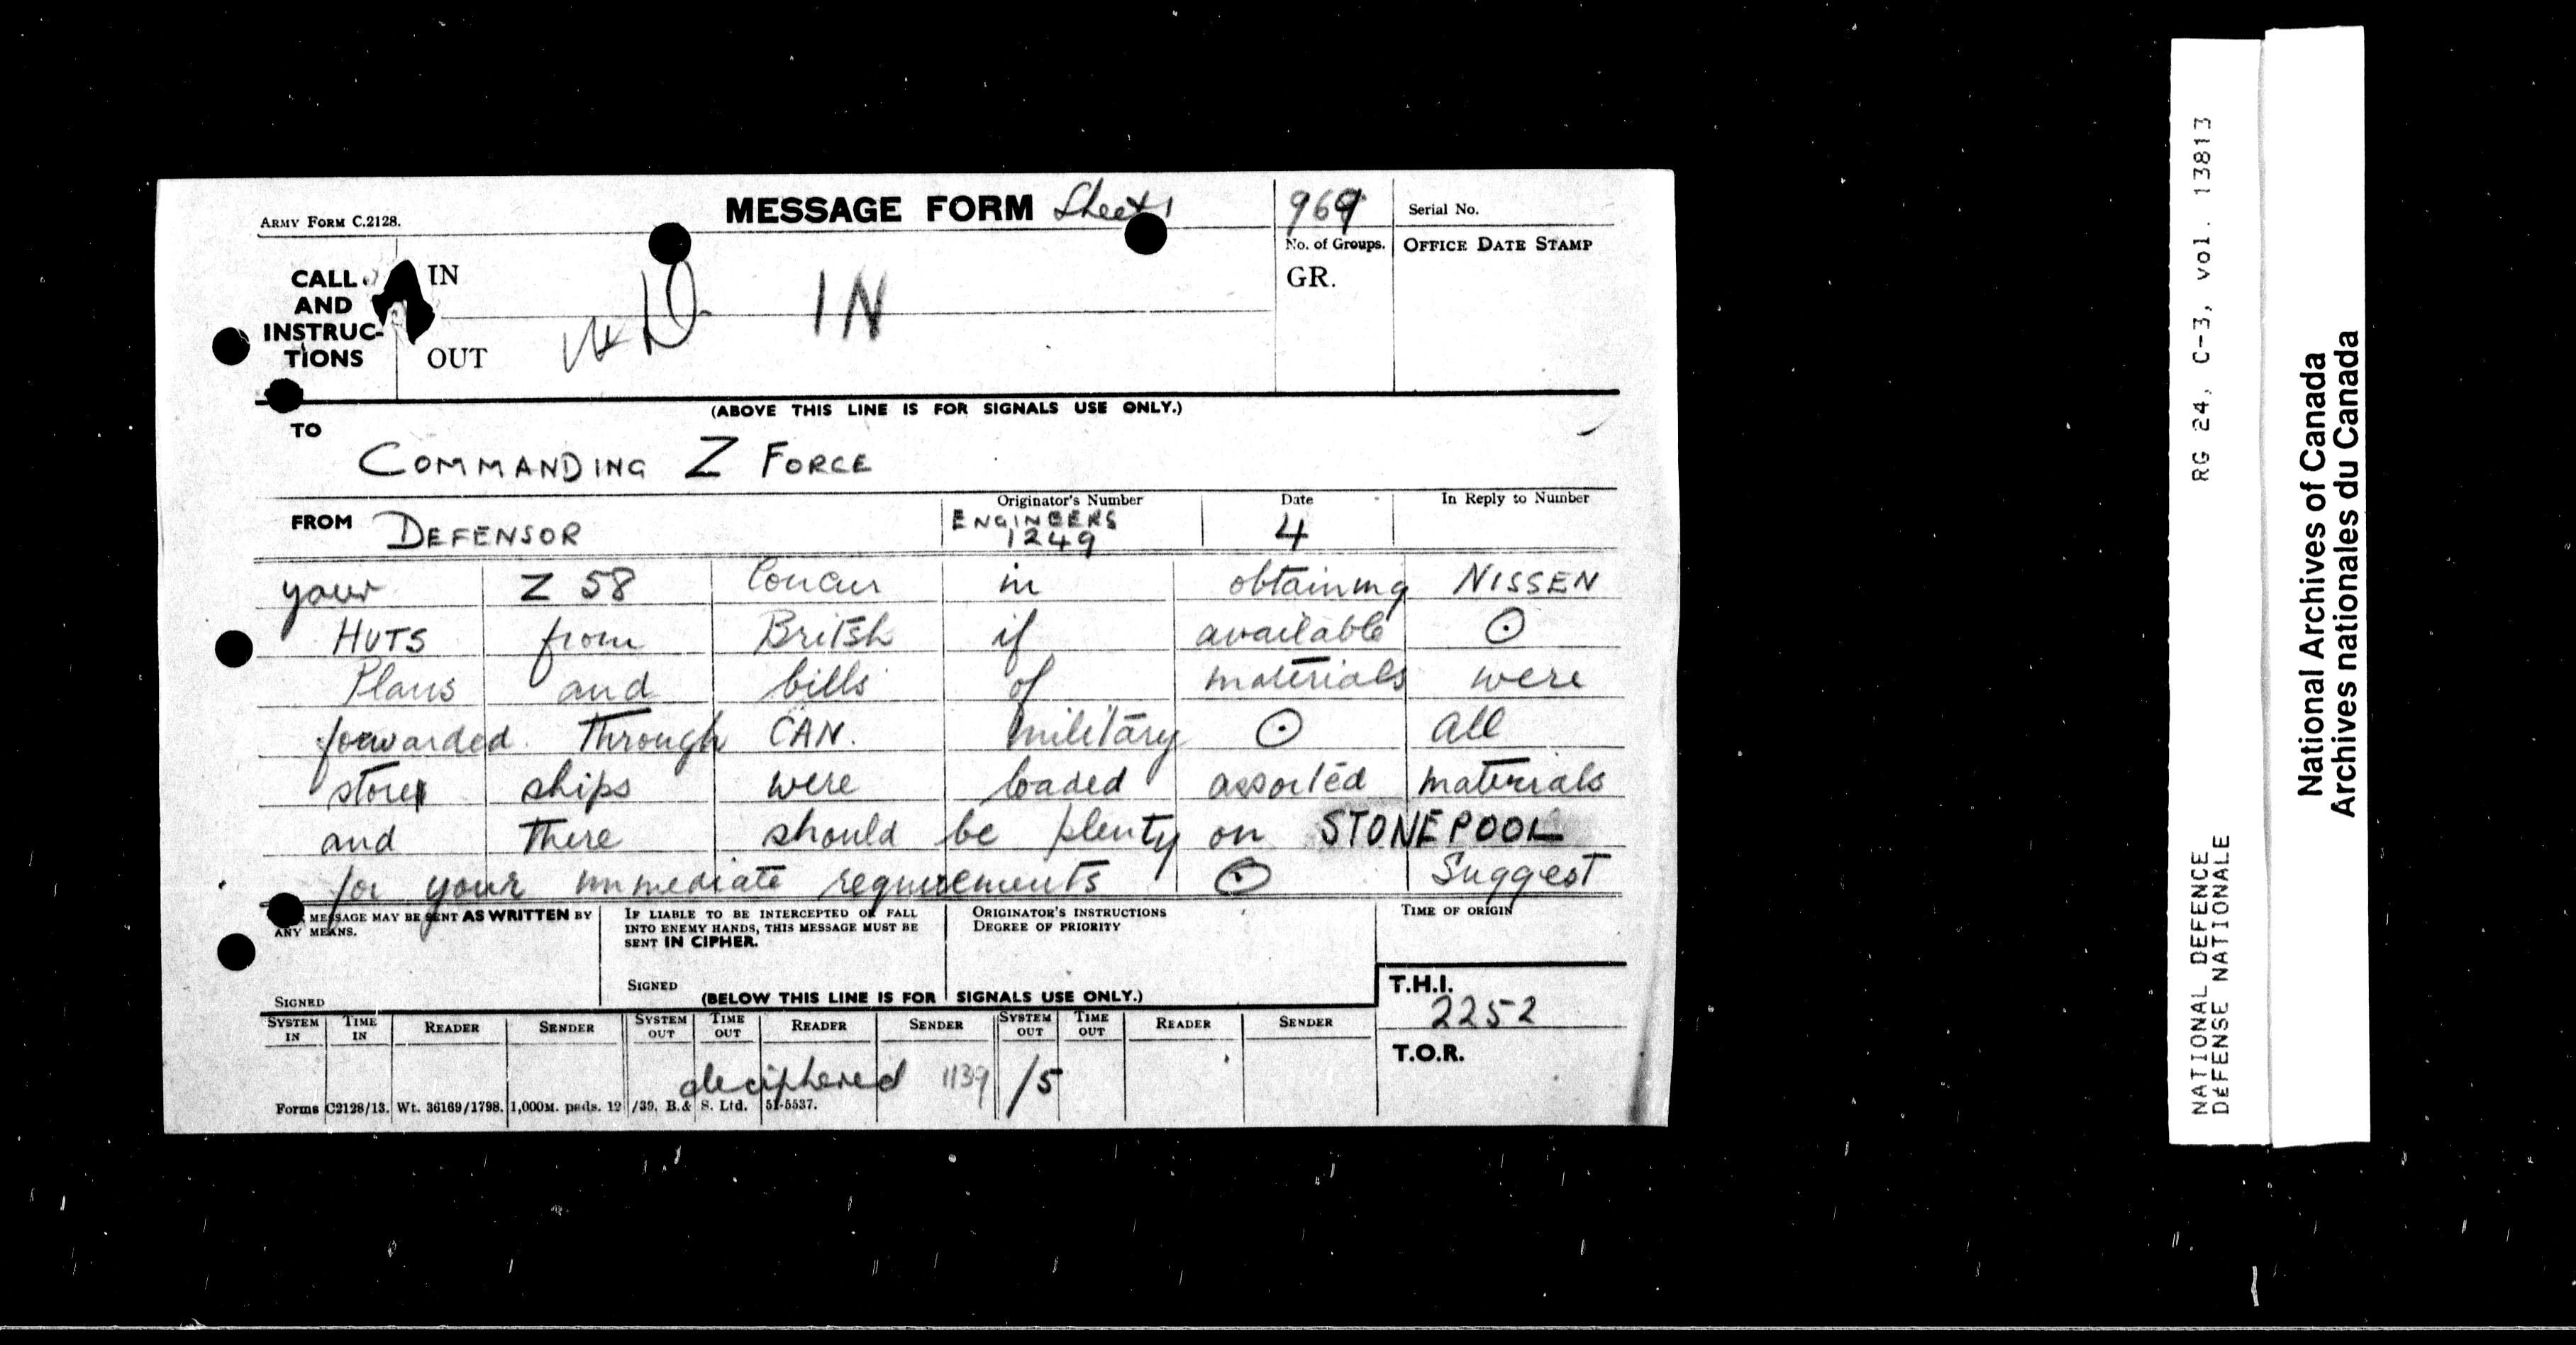 ARMY FORM C.2128.
MESSAGE FORM Sheet 1
969
Serial No.
No. of Groups.
OFFICE DATE STAMP
CALL AND INSTRUC- TIONS
IN
OUT
GR.
IN
(ABOVE THIS LINE IS FOR SIGNALS USE ONLY.)
TO
COMMANDING Z FORCE
FROM DEFENSOR
Originator's Number
ENGINEERS
1249
Date
4
In Reply to Number
your Z 58 Concur in obtaining NISSEN
HUTS from British if available ⊙
Plans and bills of materials were
forwarded through CAN. military ⊙ All
store ships were loaded assorted materials
and there should be plenty on STONEPOOL
for your immediate requirements ⊙ Suggest
MESSAGE MAY BE SENT AS WRITTEN BY
ANY MEANS.
SIGNED
IF LIABLE TO BE INTERCEPTED OR FALL
INTO ENEMY HANDS, THIS MESSAGE MUST BE
SENT IN CIPHER.
SIGNED
ORIGINATOR'S INSTRUCTIONS
DEGREE OF PRIORITY
TIME OF ORIGIN
(BELOW THIS LINE IS FOR SIGNALS USE ONLY.)
T.H.I.
2252
T.O.R.
SYSTEM IN TIME IN READER SENDER SYSTEM OUT TIME OUT READER SENDER SYSTEM OUT TIME OUT READER SENDER
deciphered 1139 /5
Forms C2128/13. Wt. 36169/1798. 1,000M. pads. 12/39. B.& S. Ltd. 51-5537.
RG 24, C-3, vol. 13813
NATIONAL DEFENCE
DÉFENSE NATIONALE
National Archives of Canada
Archives nationales du Canada